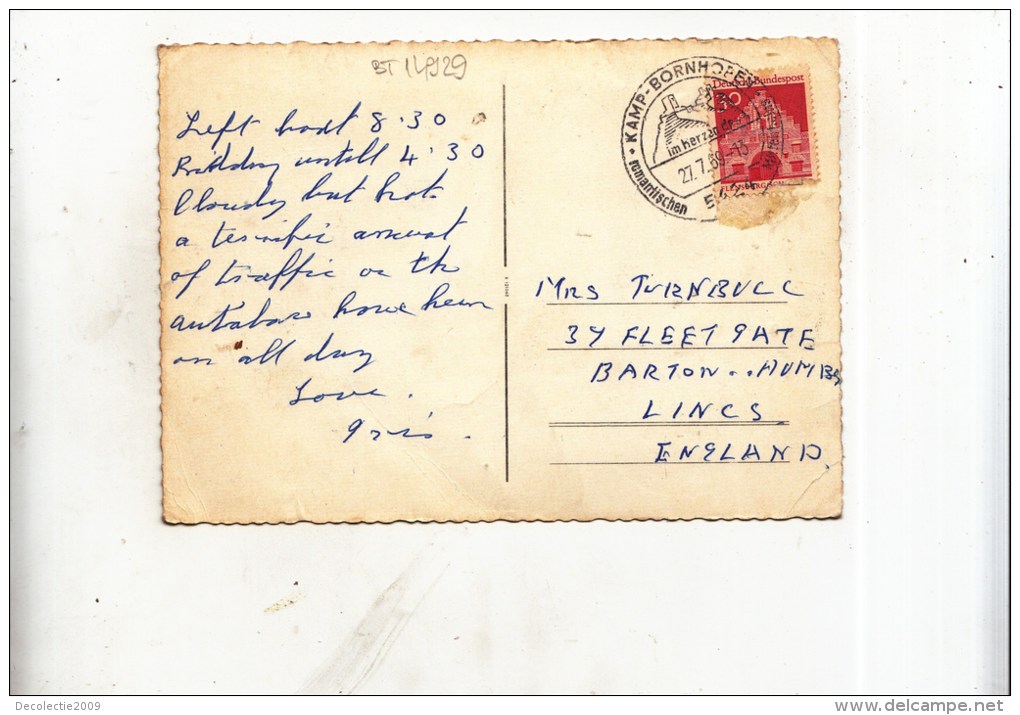 BT 14929
Left hadt 8.30
Riding untill 4.30
Cloudy but hot
a terrific amount
of traffic on the
autabar have been
on all day
Love.
Iris.
KAMP-BORNHOFEN
im Herzen des
27.7.69-13
romantischen
5424
30
Deutsche Bundespost
FLENSBURG
MRS TURNBULL
37 FLEETGATE
BARTON..HUMBR
LINCS
ENGLAND.
Decolectie2009
www.delcampe.net